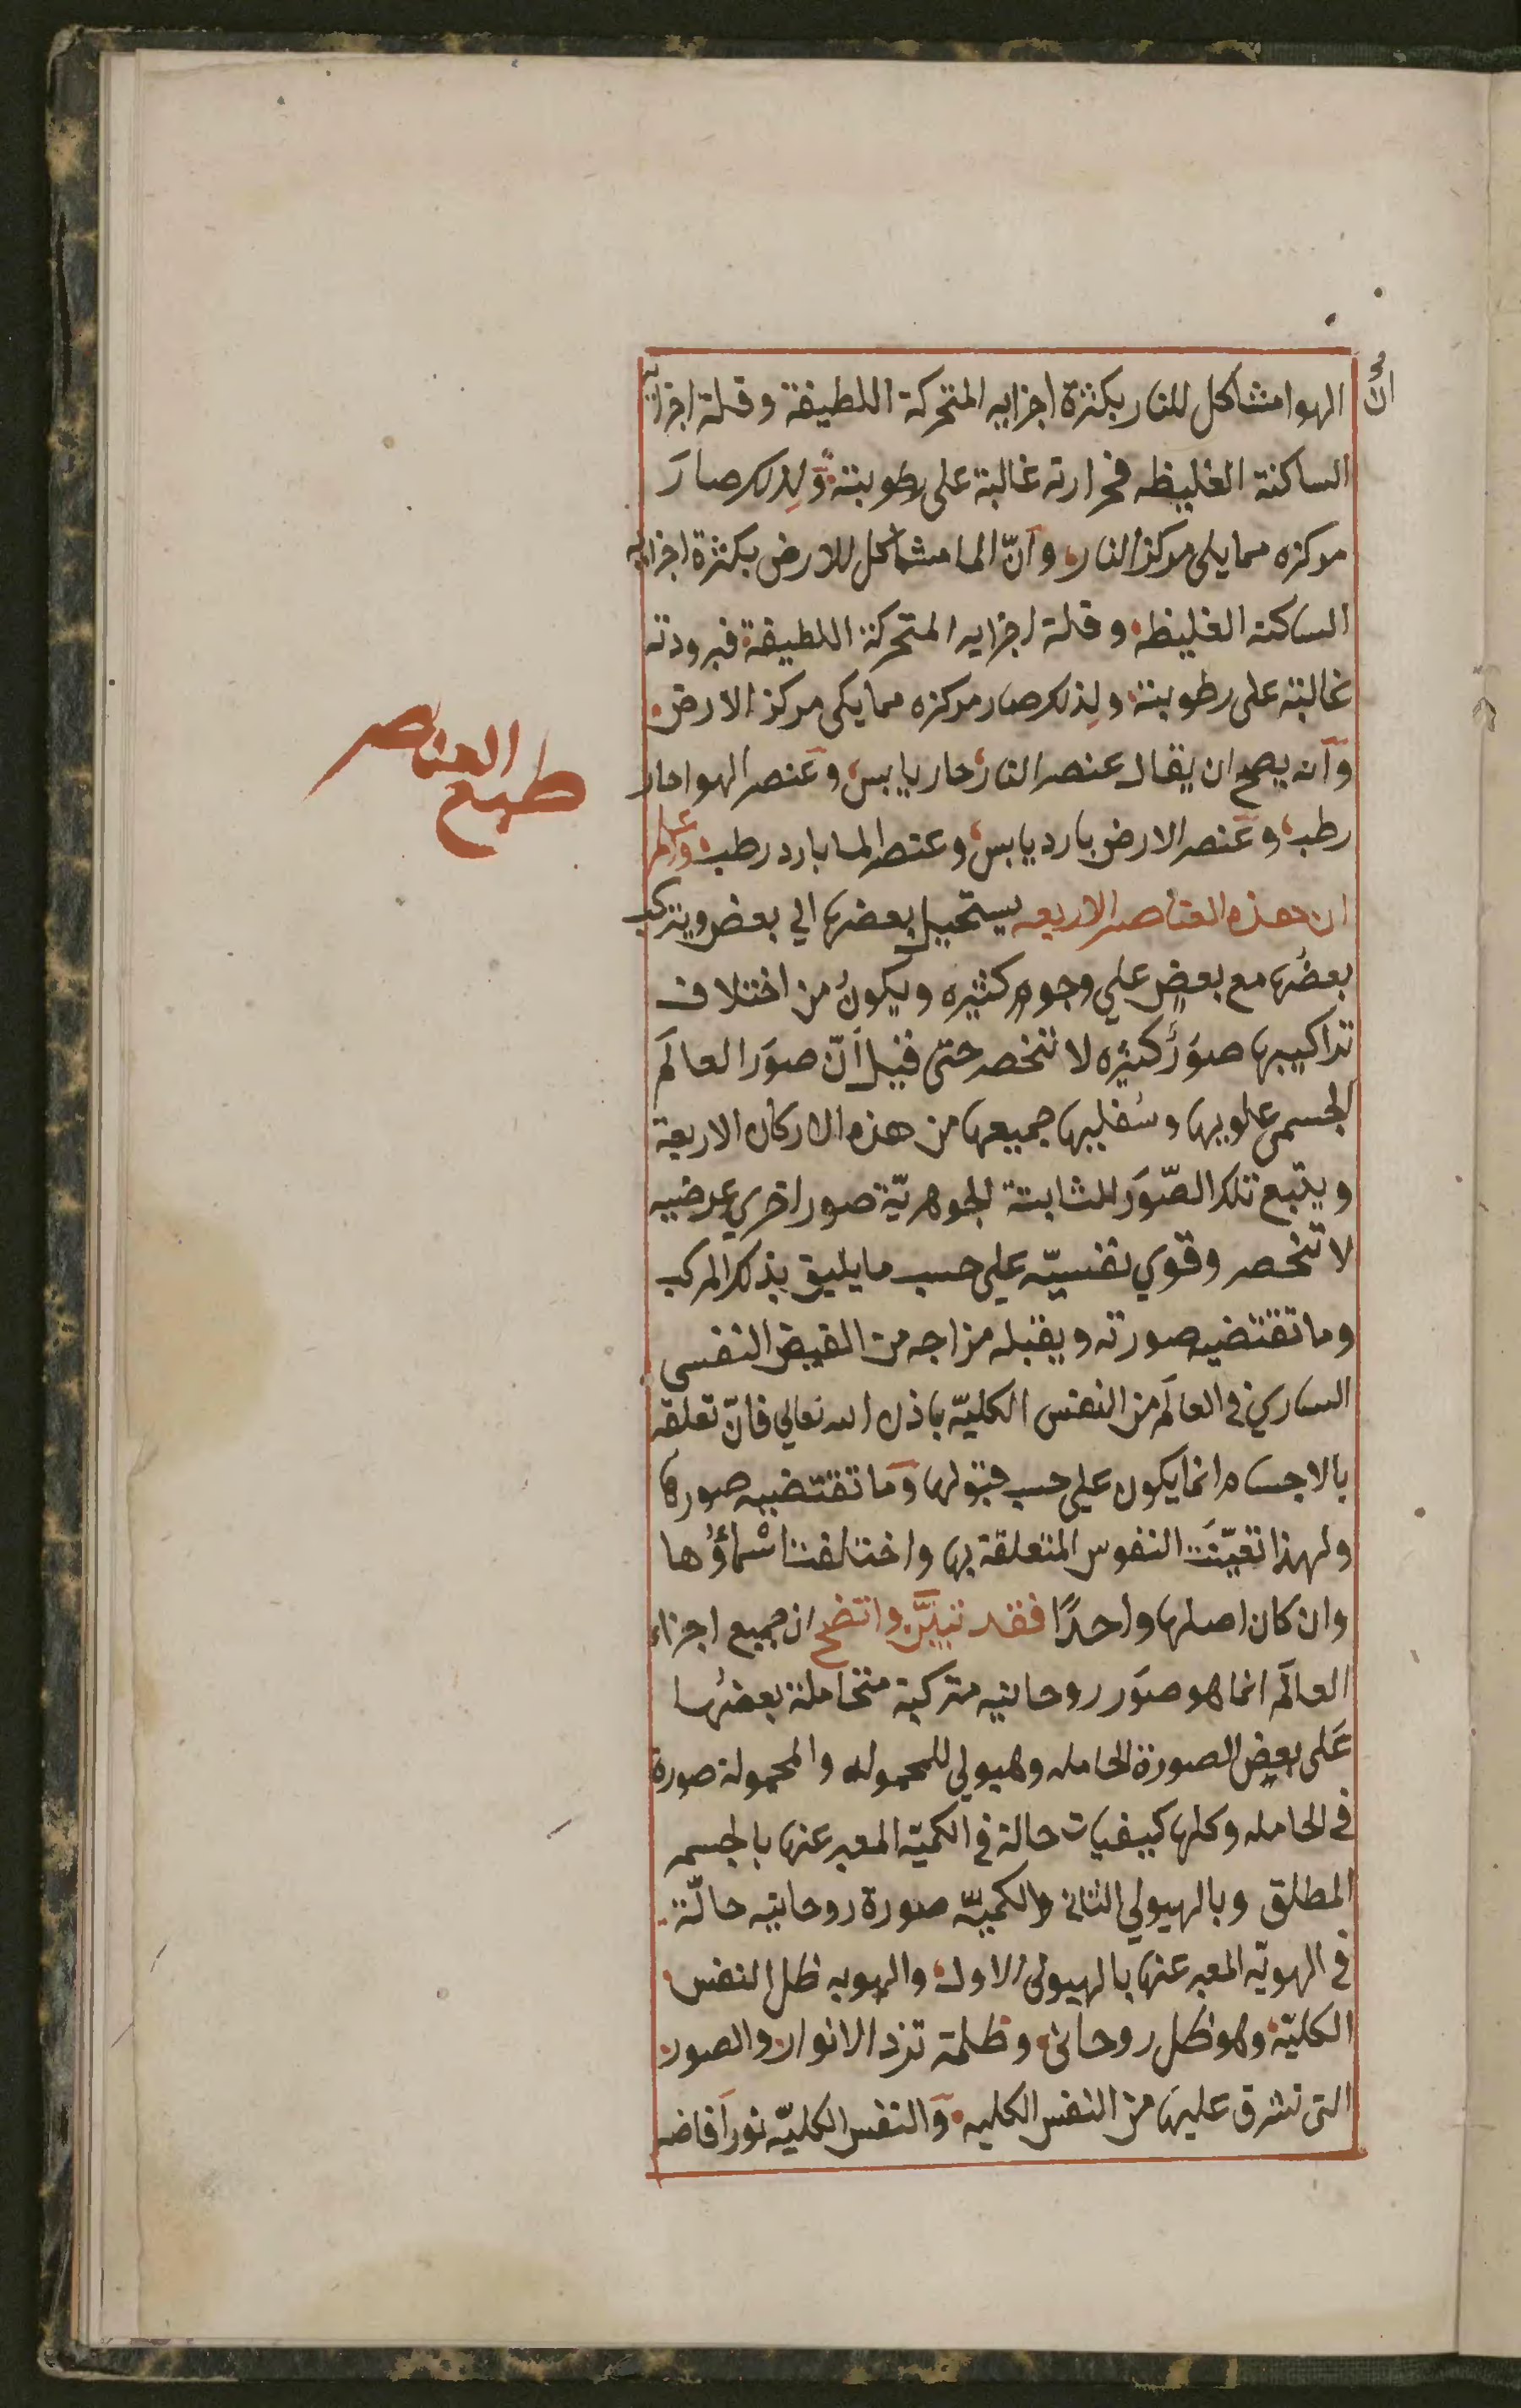 انّ الهوا مشاكل للنار بكثرة اجزايه المتحركة اللطيفة وقلة اجزايه
الساكنة الغليظه فحرارته غالبة على رطوبته ولذلك صارَ
مركزه مما يلى مركز النار، وانّ الما مشاكل للارض بكثرة اجزايه
الساكنه الغليظه وقلة اجزايه المتحركة اللطيفة فبرودته
غالبته على رطوبته ولِذلك صار مركزه مما يلى مركز الارض
وانه يصح ان يقال عنصر النار حار يابس، وعنصر الهوا حار
رطب، وعنصر الارض بارد يابس، وعنصر الما بارد رطب، واعلم
ان هذه العناصر الاربعه يستحيل بعضها الي بعض ويتركب
بعضُها مع بعضٍ علي وجوهٍ كثيره ويكونُ من اختلاف
تراكيبها صوَرٌ كثيره لا تنحصر حتى قيل اَنّ صوَر العالَم
الجسمى علويها وسُفليها جميعها من هذه الاركان الاربعة
ويتبع تلك الصّوَر الثابتة الجوهريّة صور اخري عرضيه
لا تنحصر وقوي نفسيّه علي حسب ما يليق بذلك المركب
وما تقتضيه صورته ويقبله مزاجه من الفيض النفسى
الساري في العالَم من النفس الكليّه باذن الله تعالي فانّ تعلقه
بالاجسام انما يكون علي حسب قبولها وما تقتضيه صورها
ولهذا تعيّنَت النفوس المتعلقة بها واختلفت اسْماؤُها
وان كان اصلها واحدًا فقد تبيَّن واتضح ان جميع اجزاء
العالَم انما هو صوَر روحانيه متركبة متحاملة بعضُها
عَلى بعضٍ الصورة الحامله وهيولي للمحموله والمحمولة صورة
في الحامله وكلها كيفيات حالة في الكميّه المعبر عنها بالجسم
المطلق وبالهيولي الثانى والكميّه صورة روحانيه حالّة
في الهويّه المعبر عنها بالهيولى الاول، والهويه ظل النفس
الكليّة، وهو ظل روحانى، وظلمة ترد الانوار والصور
التى تشرق عليها من النفس الكليه، والنفس الكليّه نور افاضه
طبع العناصر